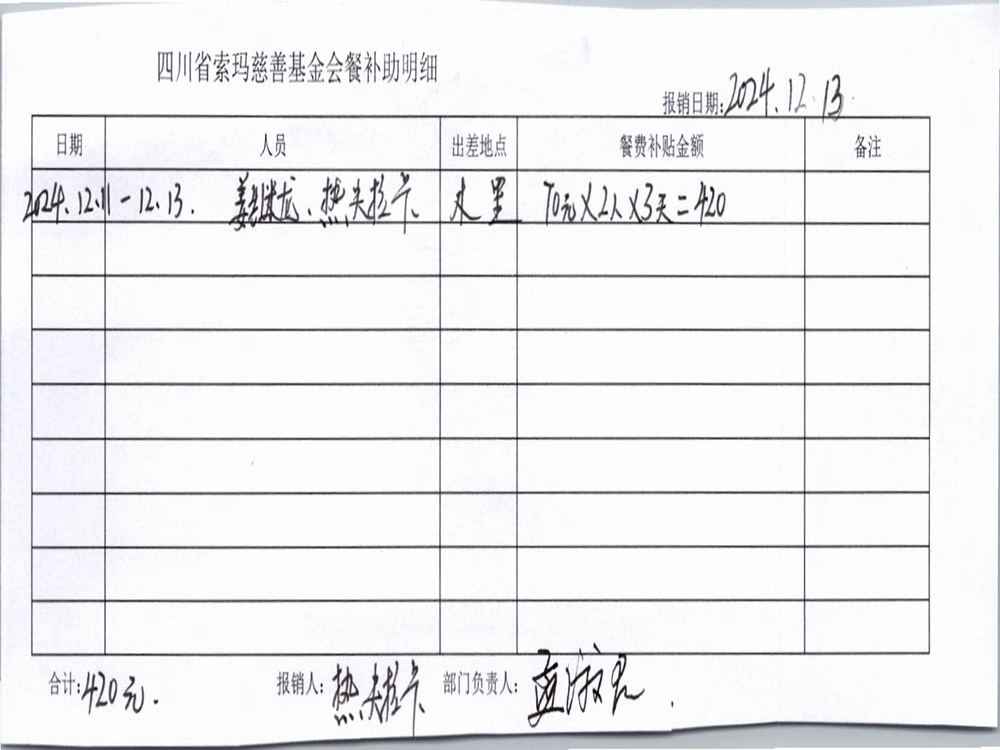 四川省索玛慈善基金会餐补助明细
报销日期:2024.12.13.
日期 人员 出差地点 餐费补贴金额 备注
2024.12.11-12.13. 姜继龙、热夫拉卡 70元×2人×3天=420
合计:420元. 报销人:热夫拉卡 部门负责人: